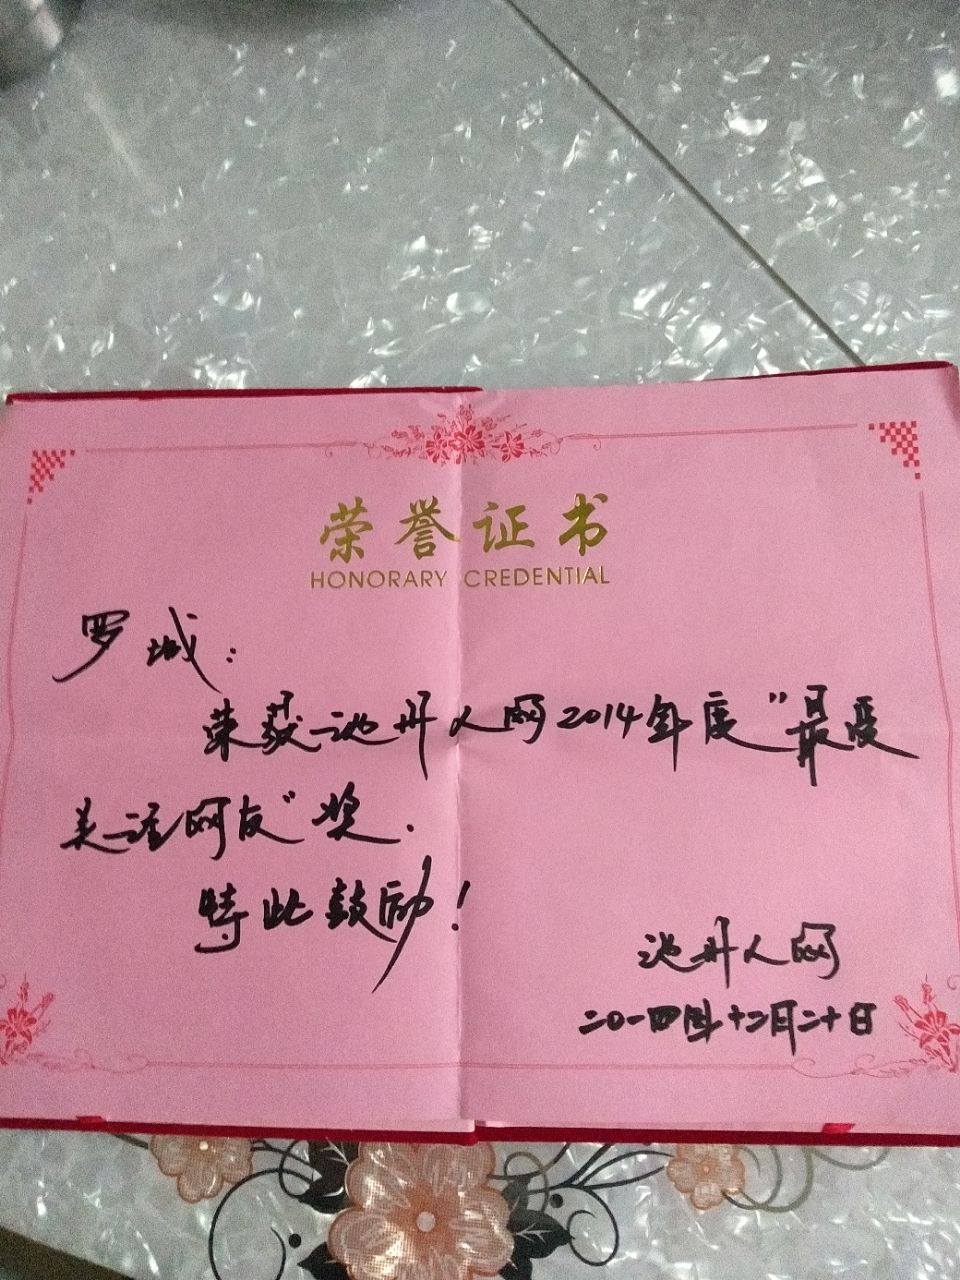 荣誉证书
HONORARY CREDENTIAL
罗城:
荣获池州人网2014年度"最受
关注网友"奖.
特此鼓励!
池州人网
二〇一四年十二月二十日